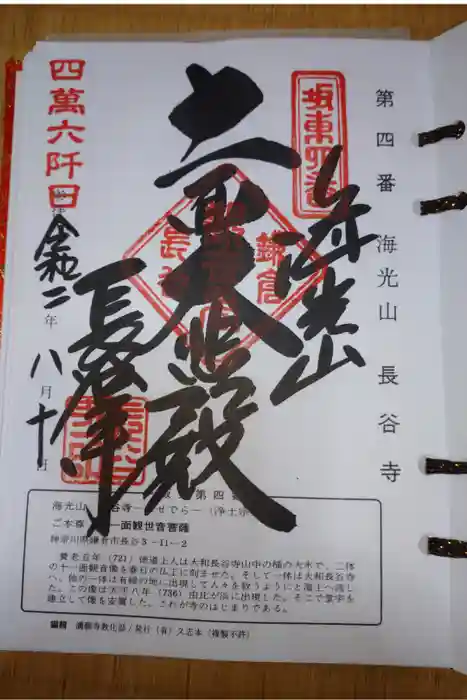 第四番 海光山 長谷寺
坂東四番
海光山
鎌倉
十一面大悲殿
長谷寺
令和二年八月十日
四萬六阡日
第四
海光山 谷寺―せでら―（浄土宗
ご本尊 一面観世音菩薩
神奈川県鎌倉市長谷3－11－2
養老五年（721）徳道上人は大和長谷寺山中の楠の大木で、二体
の十一面観音像を春日の仏工に刻ませた。そして一体は大和長谷寺
へ、他の一体は有縁の地に出現して人々を救うようにと海上へ流し
た。この像は天平八年（736）由比が浜に出現した。そこで堂宇を
建立して像を安置した。これが寺のはじまりである。
編輯 満願寺教化部／発行（有）久志本（複製不許）